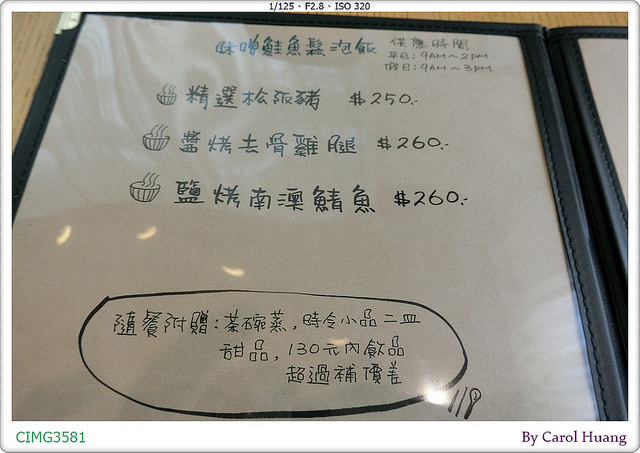 1/125、F2.8、ISO 320
味噌鮭魚鬆泡飯
供應時間
平日：9AM～2PM
假日：9AM～3PM
精選松阪豬 $250.-
醬烤去骨雞腿 $260.-
鹽烤南澳鯖魚 $260.-
隨餐附贈：茶碗蒸，時令小品二皿
甜品，130元內飲品
超過補價差
CIMG3581
By Carol Huang